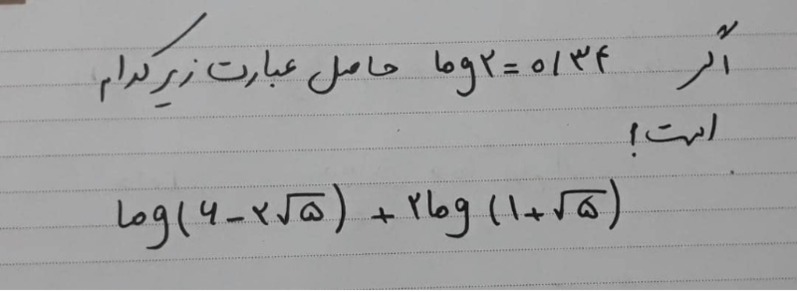 اگر log۲ = ۰/۳۴ حاصل عبارت زیر کدام
است؟
log(۶-۲√۵) + ۲log(۱+√۵)